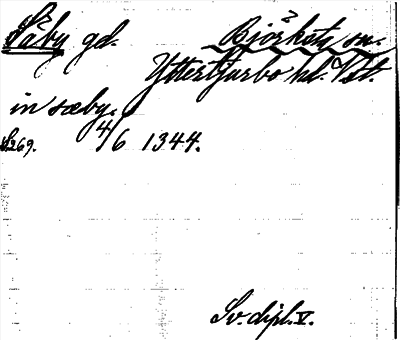 Säby gd. Björksta sn.
Yttertjurbo hd. Vst.
in sæby.
S. 269. 4/6 1344.
Sv. dipl. V.